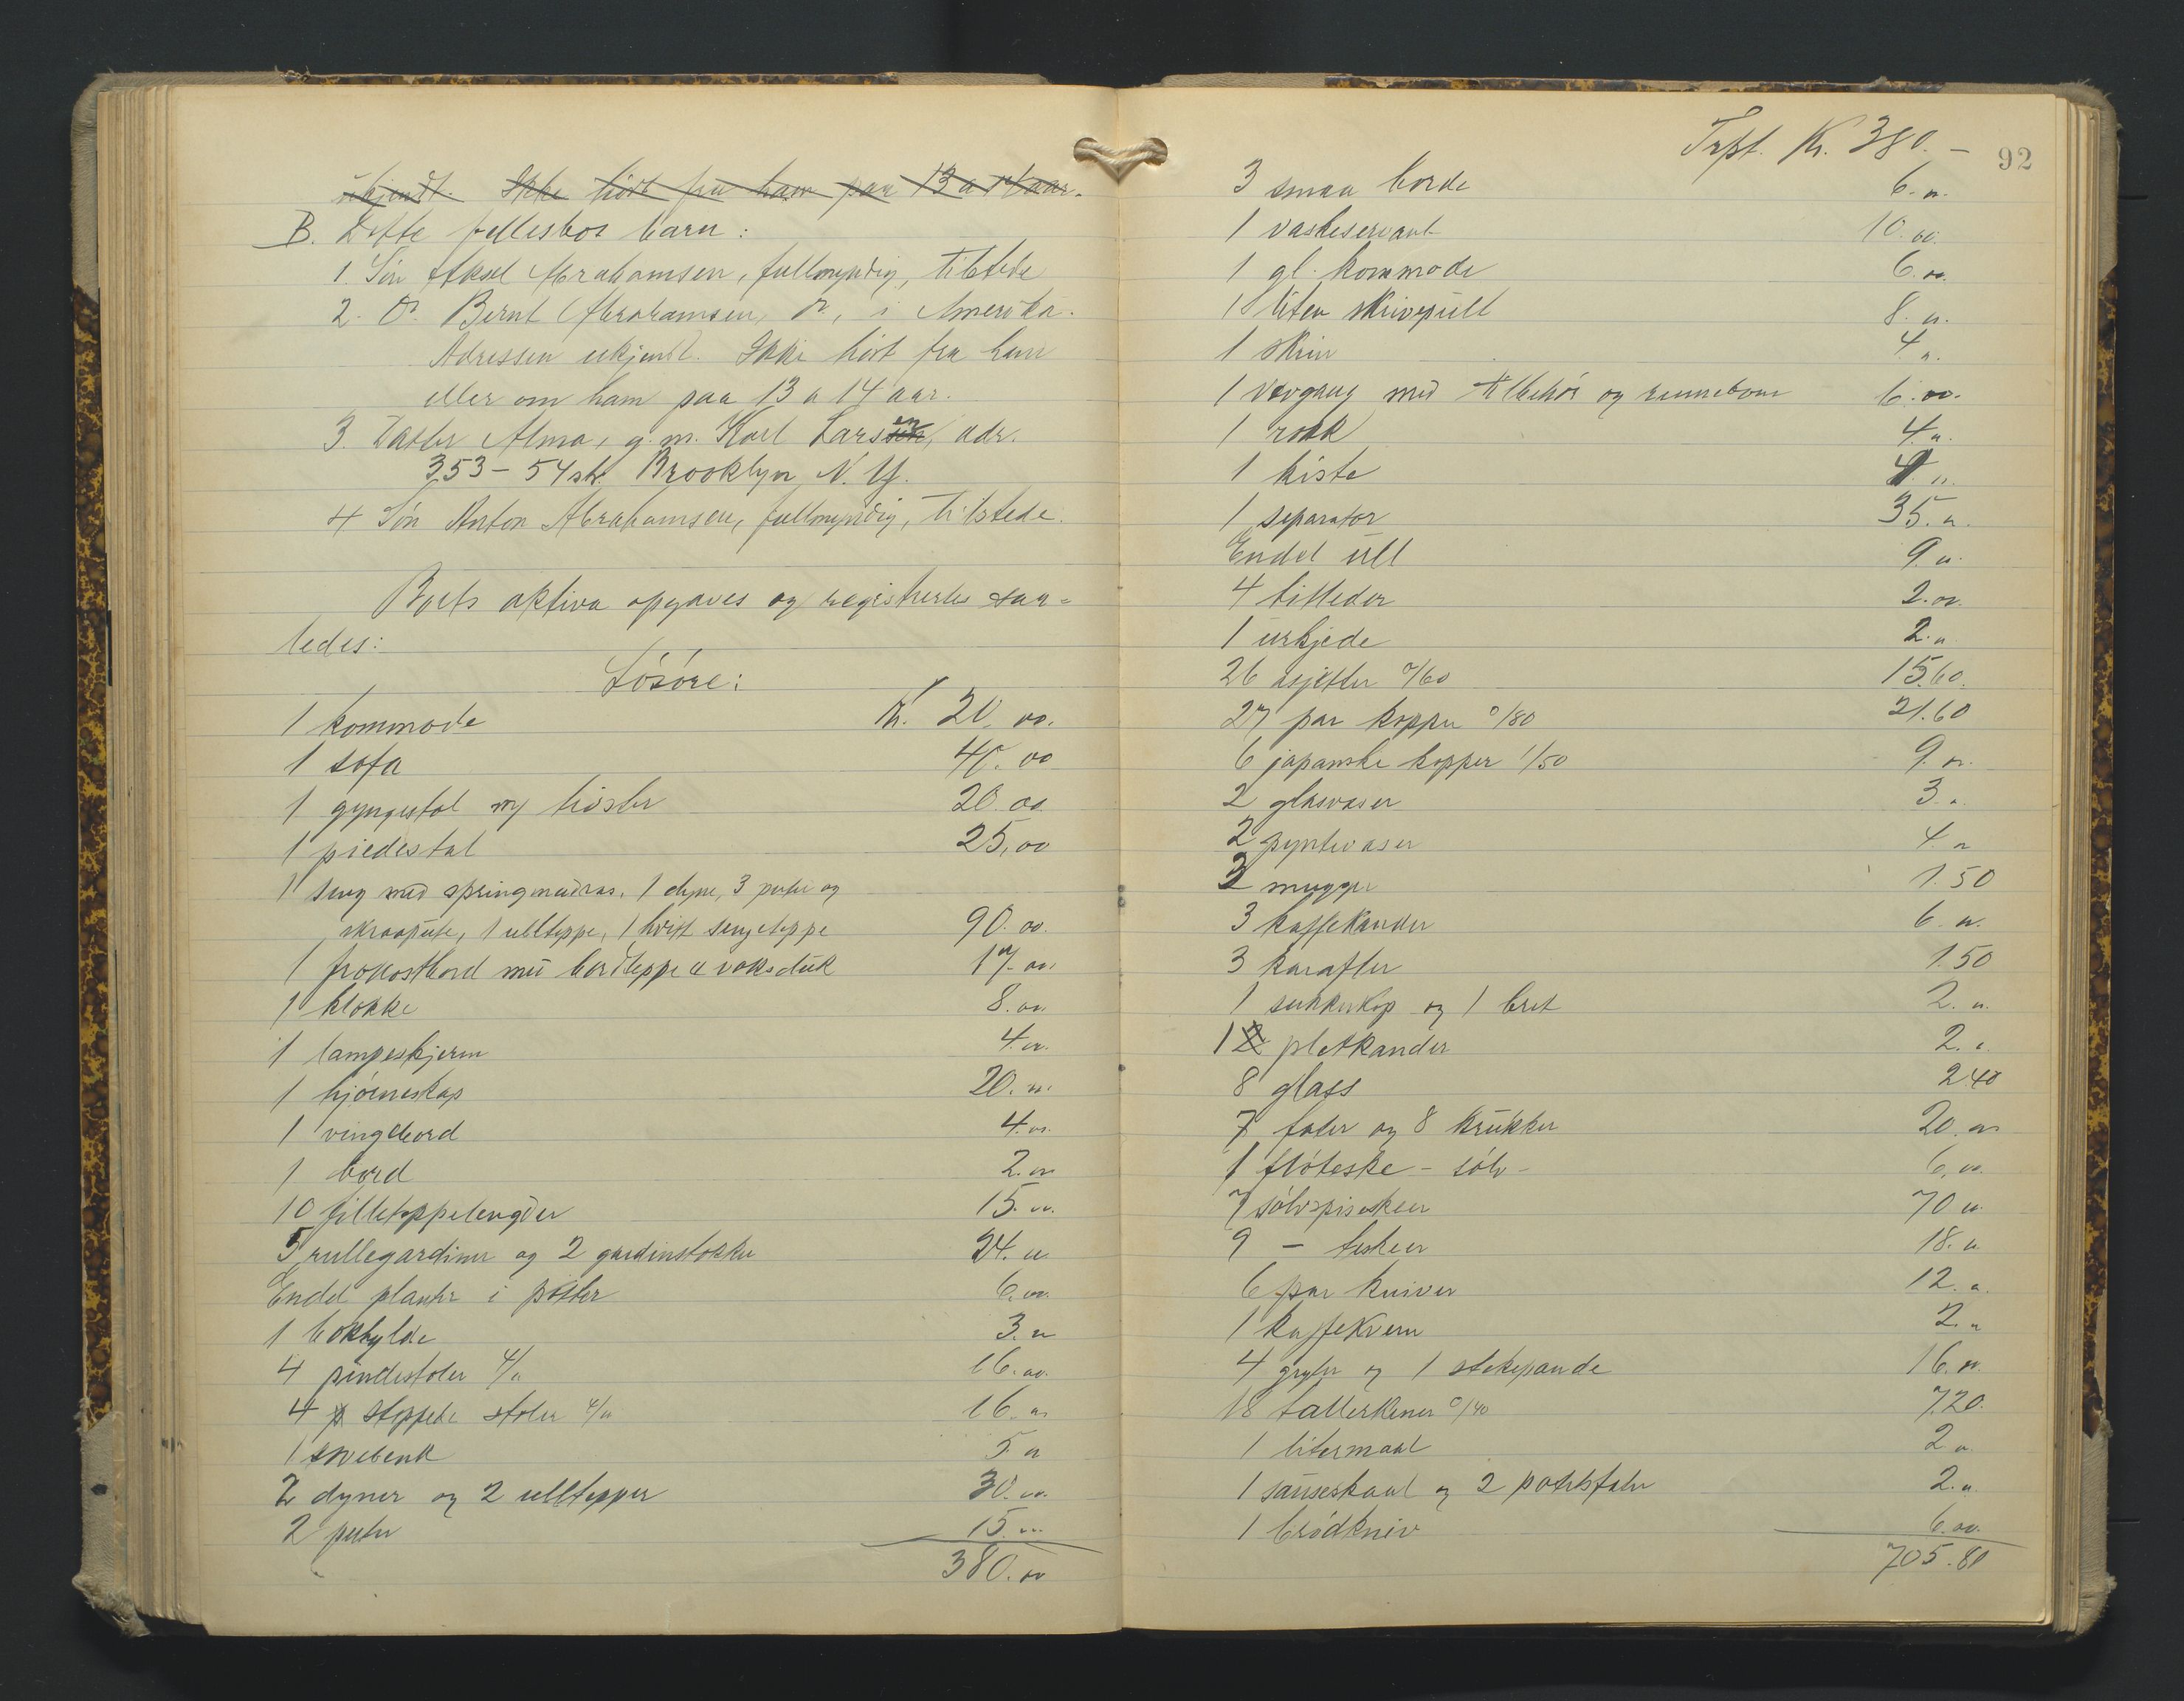 ukjendt. Ikke hört fra ham paa 13 a 14 aar.
B. Dette fellesbos barn:
1. Sön Aksel Abrahamsen, fullmyndig, tilstede
2. Do. Bernt Abrahamsen, do., i Amerika.
Adressen ukjendt. Ikke hört fra ham
eller om ham paa 13 a 14 aar.
3. Datter Alma, g. m. Karl Larssen, adr.
353 - 54 str. Brooklyn, N. Y.
4 Sön Anton Abrahamsen, fullmyndig, tilstede.
Boets aktiva opgaves og registrertes saa-
ledes:
Lösöre:
1 kommode Kr. 20.00.
1 sofa 40.00
1 gyngestol 20.00
1 piedestal 25,00
1 seng med springmadras, 1 dyne, 3 puter og
skraapute, 1 ullteppe, 1 hvitt sengeteppe 90.00.
1 frokostbord med bordteppe a voksduk 17.00
1 klokke 8.00
1 lampeskjerm 4.00.
1 hjörneskap 20.00.
1 vingebord 4.00.
1 bord 2.00
10 filleteppelengder 15.00.
5 rullegardiner og 2 gardinstokker 24.00
Endel planter i potter 6.00.
1 bokhylde 3.00
4 pindestoler 4/00 16.00.
4 stoppede stoler 4/00 16.00
1 sovebenk 5.00
2 dyner og 2 ulltepper 30.00.
2 puter 15.00
380.00
92
Trpt. Kr. 380.-
3 smaa borde 6.00.
1 vaskeservant 10.00.
1 gl. kommode 6.00.
1 liten skrivepult 8.00.
1 skrin 4.00.
1 vevgreug med tilbehör og rennebom 6.00.
1 rokk 4.00.
1 kiste 4.00.
1 separator 35.00.
Endel ull 9.00
4 billeder 2.00.
1 urkjede 2.00
26 asjetter 0/60 15.60.
27 par kopper 0/80 21.60
6 japanske kopper 1/50 9.00.
2 glasvaser 3.00
2 pyntevaser 4.00
3 mugger 1.50
3 kaffekander 6.00.
3 karafler 1.50
1 sukkerkop og 1 bret 2.00.
1 2 pletkander 2.00
8 glass 2.40
7 fater og 8 krukker 20.00
1 flöteske - sölv - 6.00.
7 sölvspiseskeer 70.00
9 - teskeer 18.00
6 par kniver 12.00
1 kaffekvern 2.00
4 gryter og 1 stekepande 16.00.
18 tallerkener 0/40 7.20.
1 litermaal 2.00
1 sauseskaal og 2 potetsfater 2.00
1 brödkniv 6.00.
705.80